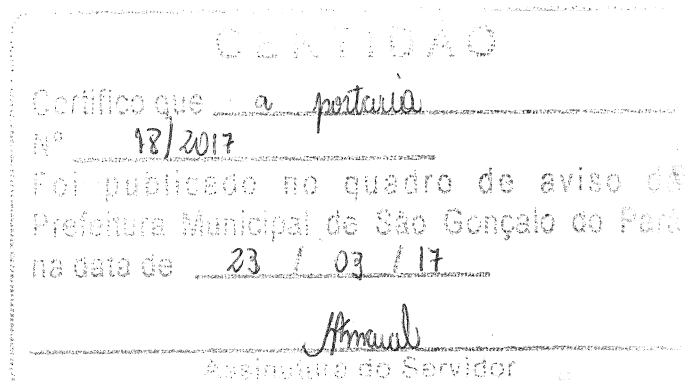 CERTIDÃO
Certifico que a portaria
Nº 18/2017
Foi publicado no quadro de aviso da
Prefeitura Municipal de São Gonçalo do Pará
na data de 23 / 03 / 17
Assinatura do Servidor